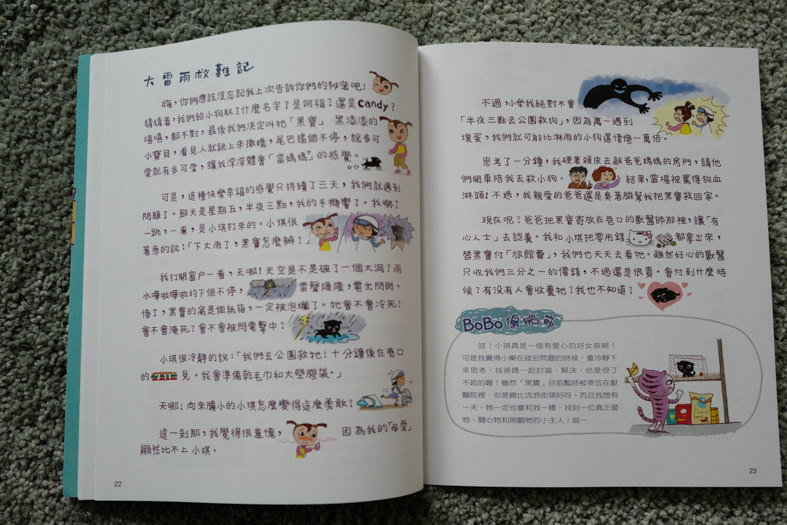 大雷雨救難記
嗨，你們應該沒忘記我上次告訴你們的秘密吧！
猜猜看，我們給小狗取了什麼名字？是阿福？還是Candy？
嘻嘻，都不對，最後我們決定叫牠「黑寶」。黑漆漆的
小寶貝，看見人就跳上來撒嬌，尾巴搖個不停，說多可
愛就有多可愛，讓我深深體會「當媽媽」的感覺。
可是，這種快樂幸福的感覺只持續了三天，我們就遇到
問題了。那天是星期五，半夜三點，我的手機響了。我嚇了
一跳，一看，是小琪打來的。小琪很
著急的說：「下大雨了，黑寶怎麼辦？」
我打開窗戶一看，天哪！天空是不是破了一個大洞？雨
水嘩啦嘩啦的下個不停，雷聲隆隆，電光閃閃。
慘了，黑寶的窩是個紙箱，一定被泡爛了。牠會不會冷死？
會不會淹死？會不會被閃電擊中？
小琪很冷靜的說：「我們去公園救牠！十分鐘後在巷口
的見。我會準備乾毛巾和大塑膠袋。」
天哪！向來膽小的小琪怎麼變得這麼勇敢？
這一剎那，我覺得很羞愧，因為我的「母愛」
顯然比不上小琪。
22
不過，小樂我絕對不會
「半夜三點去公園救狗」，因為萬一遇到
壞蛋，我們就可能比淋雨的小狗還悽慘一萬倍。
思考了一分鐘，我硬著頭皮去敲爸爸媽媽的房門，請他
們開車陪我去救小狗。結果，當場被罵得狗血
淋頭！不過，我親愛的爸爸還是臭著臉幫我把黑寶救回家。
現在呢？爸爸把黑寶寄放在巷口的獸醫師那裡，讓「有
心人士」去認養。我和小琪把零用錢都拿出來，
替黑寶付「旅館費」，我們也天天去看牠。雖然好心的獸醫
只收我們三分之一的價錢，不過還是很貴。會付到什麼時
候？有沒有人會收養牠？我也不知道！
BoBo傷腦筋
哇！小琪真是一個有愛心的好女孩啊！
可是我覺得小樂在碰到問題的時候，會冷靜下
來思考，找爸媽一起討論、解決，也是很了
不起的喔！雖然「黑寶」目前暫時被寄放在獸
醫院裡，但是總比流浪街頭好呀。而且我想有
一天，牠一定也會和我一樣，找到一位真正愛
牠、關心牠和照顧牠的小主人！喵～
23